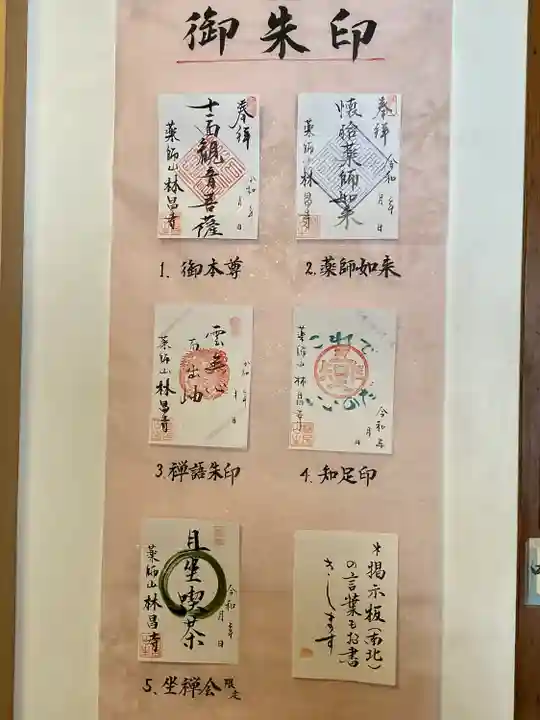 御朱印
奉拝
十一面観音菩薩
薬師山林昌寺
令和 年
月 日
1. 御本尊
奉拝
薬師如来
薬師山林昌寺
令和 年
月 日
2. 薬師如来
雲無心
而出岫
薬師山林昌寺
令和 年
月 日
3. 禅語朱印
これで
いいのだ
薬師山林昌寺
令和 年
月 日
4. 知足印
且坐喫茶
薬師山林昌寺
令和 年
月 日
5. 坐禅会 限定
*掲示板(南北)
の言葉もお書
きします